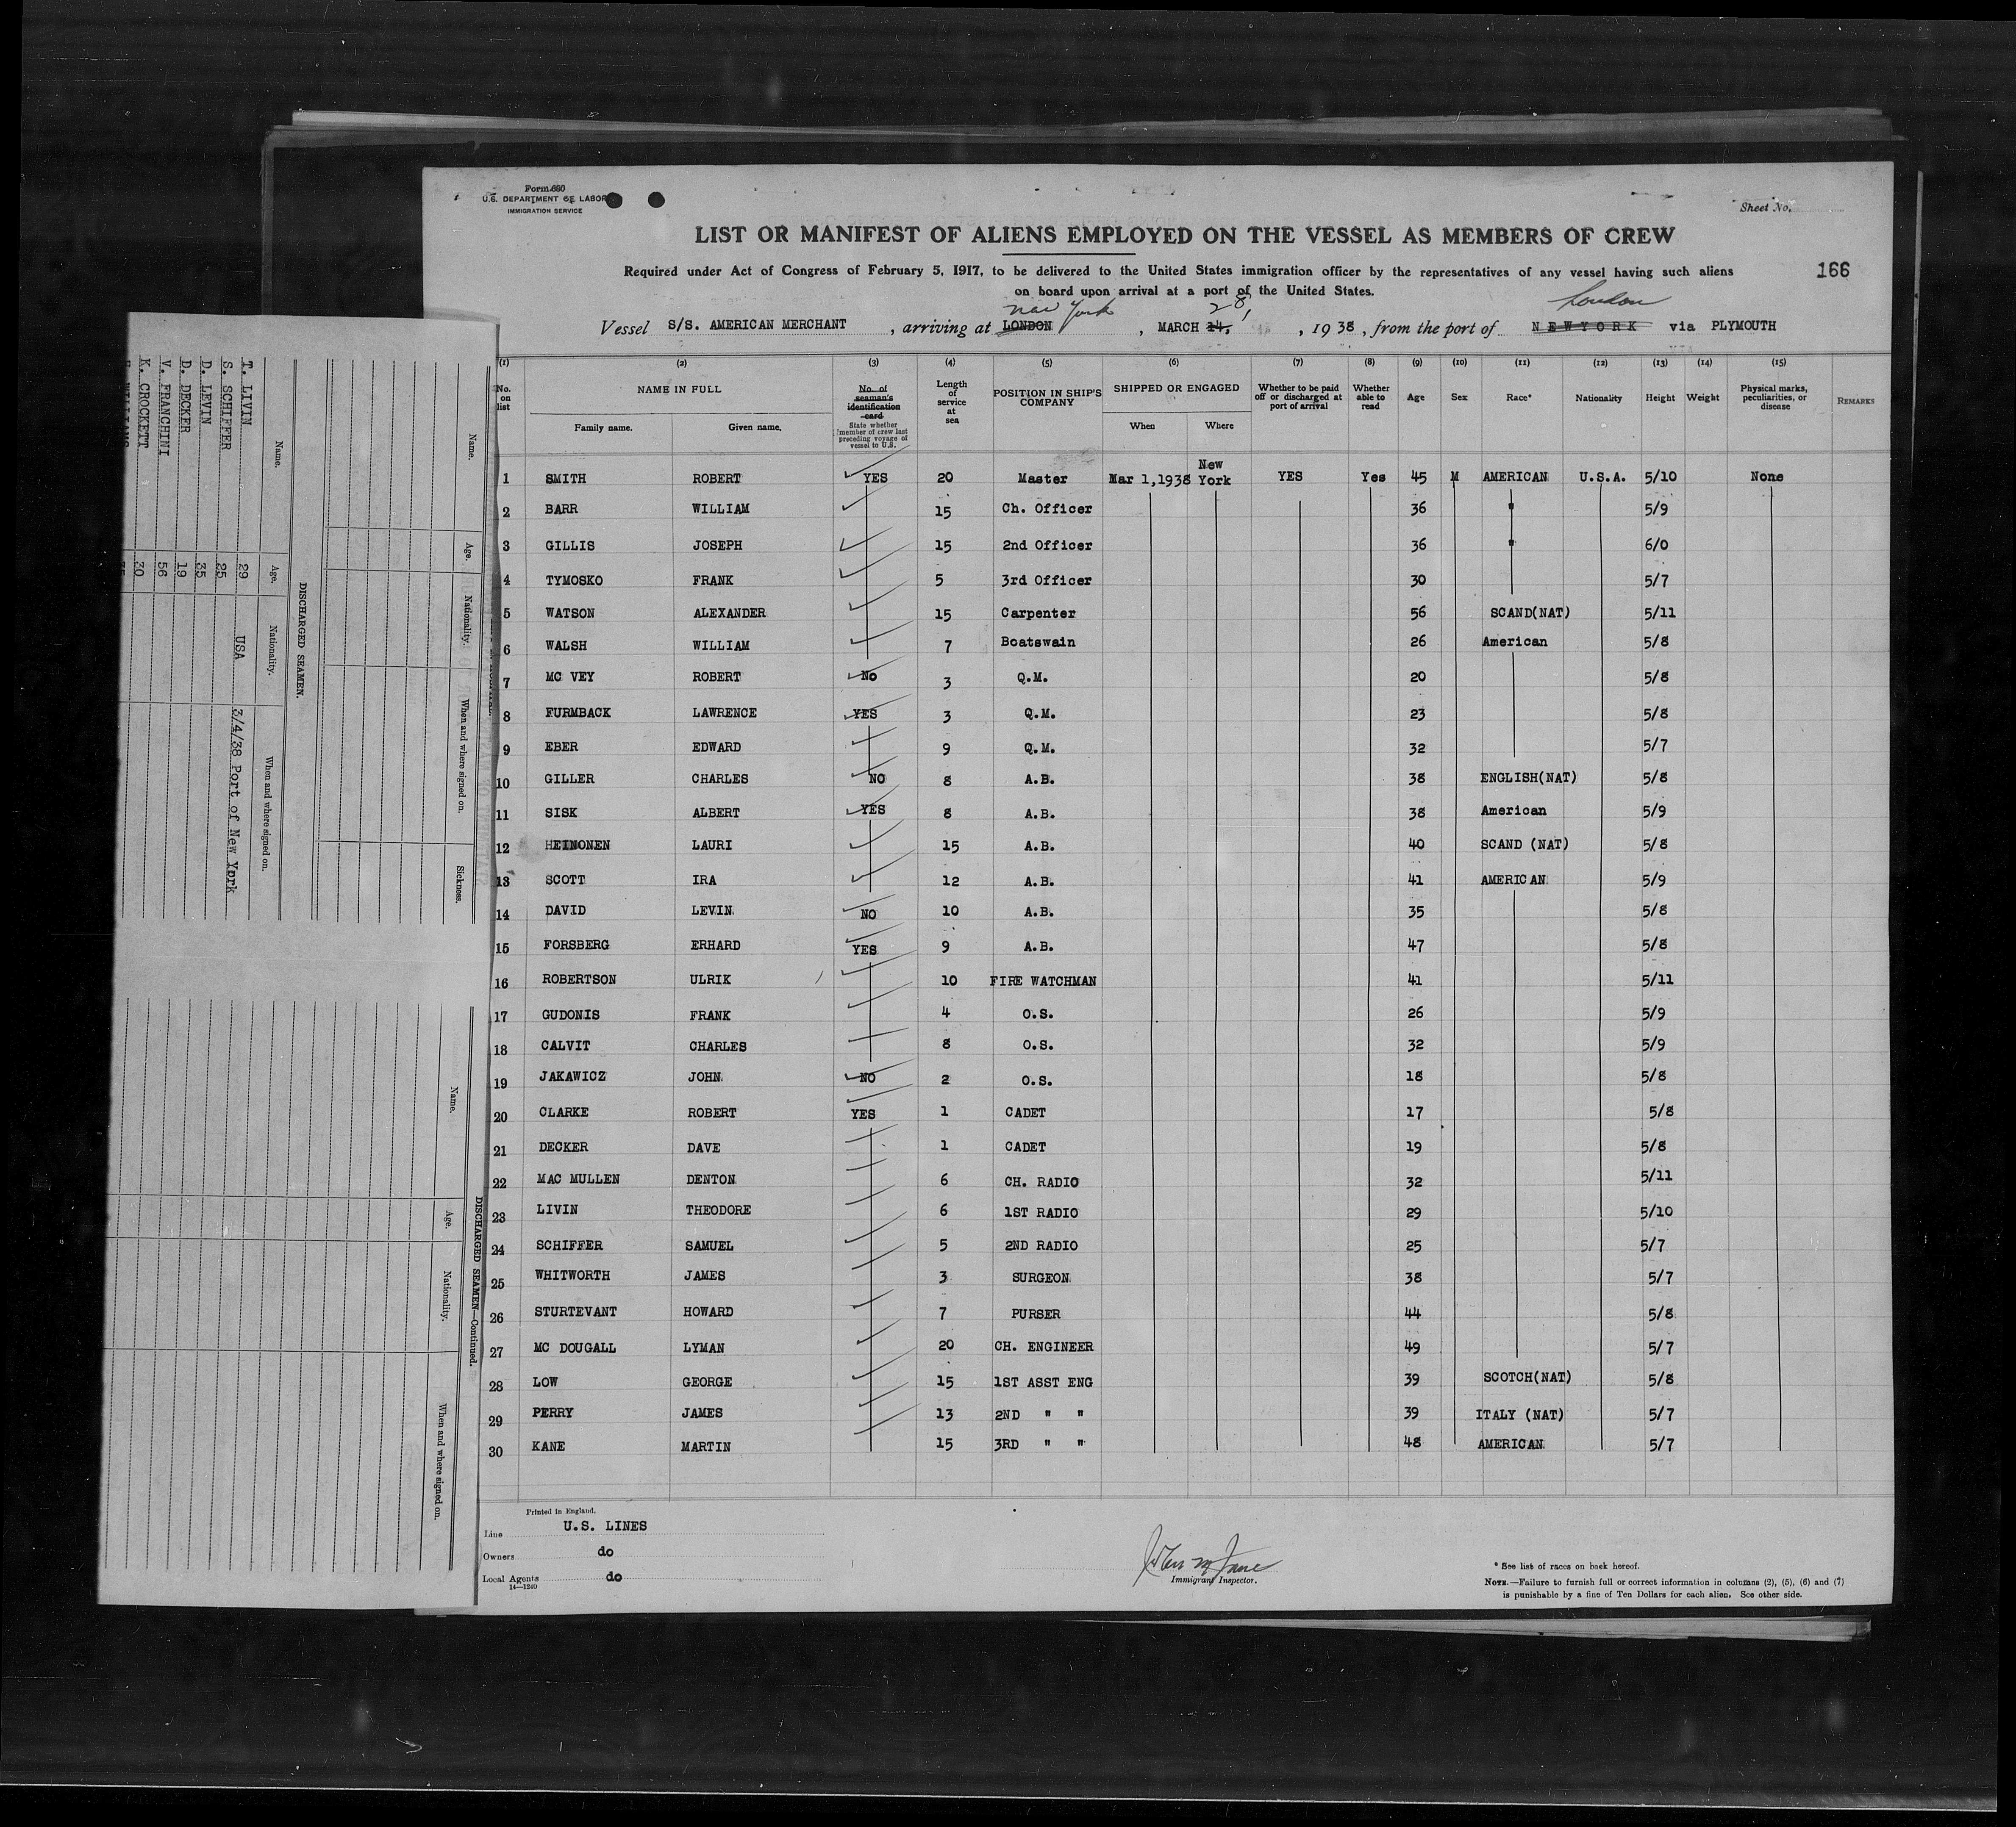 Form 680
U.S. DEPARTMENT OF LABOR
IMMIGRATION SERVICE
Sheet No.
LIST OR MANIFEST OF ALIENS EMPLOYED ON THE VESSEL AS MEMBERS OF CREW
Required under Act of Congress of February 5, 1917, to be delivered to the United States immigration officer by the representatives of any vessel having such aliens
166
on board upon arrival at a port of the United States.
New York 28, London
Vessel S/S. AMERICAN MERCHANT , arriving at LONDON , MARCH 14, , 19 38 , from the port of NEWYORK via PLYMOUTH
(1) (2) (3) (4) (5) (6) (7) (8) (9) (10) (11) (12) (13) (14) (15)
No. on list NAME IN FULL Family name. Given name. No. of seaman's identification card State whether member of crew last preceding voyage of vessel to U.S. Length of service at sea POSITION IN SHIP'S COMPANY SHIPPED OR ENGAGED When Where Whether to be paid off or discharged at port of arrival Whether able to read Age Sex Race* Nationality Height Weight Physical marks, peculiarities, or disease REMARKS
1 SMITH ROBERT YES 20 Master Mar 1,1938 New York YES Yes 45 M AMERICAN U.S.A. 5/10 None
2 BARR WILLIAM 15 Ch. Officer 36 " 5/9
3 GILLIS JOSEPH 15 2nd Officer 36 " 6/0
4 TYMOSKO FRANK 5 3rd Officer 30 5/7
5 WATSON ALEXANDER 15 Carpenter 56 SCAND(NAT) 5/11
6 WALSH WILLIAM 7 Boatswain 26 American 5/8
7 MC VEY ROBERT No 3 Q.M. 20 5/8
8 FURMBACK LAWRENCE YES 3 Q.M. 23 5/8
9 EBER EDWARD 9 Q.M. 32 5/7
10 GILLER CHARLES NO 8 A.B. 38 ENGLISH(NAT) 5/8
11 SISK ALBERT YES 8 A.B. 38 American 5/9
12 HEINONEN LAURI 15 A.B. 40 SCAND (NAT) 5/8
13 SCOTT IRA 12 A.B. 41 AMERICAN 5/9
14 DAVID LEVIN NO 10 A.B. 35 5/8
15 FORSBERG ERHARD YES 9 A.B. 47 5/8
16 ROBERTSON ULRIK 10 FIRE WATCHMAN 41 5/11
17 GUDONIS FRANK 4 O.S. 26 5/9
18 CALVIT CHARLES 8 O.S. 32 5/9
19 JAKAWICZ JOHN NO 2 O.S. 18 5/8
20 CLARKE ROBERT YES 1 CADET 17 5/8
21 DECKER DAVE 1 CADET 19 5/8
22 MAC MULLEN DENTON 6 CH. RADIO 32 5/11
23 LIVIN THEODORE 6 1ST RADIO 29 5/10
24 SCHIFFER SAMUEL 5 2ND RADIO 25 5/7
25 WHITWORTH JAMES 3 SURGEON 38 5/7
26 STURTEVANT HOWARD 7 PURSER 44 5/8
27 MC DOUGALL LYMAN 20 CH. ENGINEER 49 5/7
28 LOW GEORGE 15 1ST ASST ENG 39 SCOTCH(NAT) 5/8
29 PERRY JAMES 13 2ND " " 39 ITALY (NAT) 5/7
30 KANE MARTIN 15 3RD " " 48 AMERICAN 5/7
Printed in England.
Line U.S. LINES
Owners do
Local Agents do
14—1240
Immigrant Inspector.
* See list of races on back hereof.
NOTE.—Failure to furnish full or correct information in columns (2), (5), (6) and (7)
is punishable by a fine of Ten Dollars for each alien. See other side.
Name. Age. Nationality. When and where signed on. Sickness.
DISCHARGED SEAMEN.
Name. Age. Nationality. When and where signed on.
T. LIVIN 29 USA 3/4/38 Port of New York
S. SCHIFFER 25
D. LEVIN 35
D. DECKER 19
V. FRANCHINI 56
K. CROCKETT 30
DISCHARGED SEAMEN—Continued.
Name. Age. Nationality. When and where signed on.